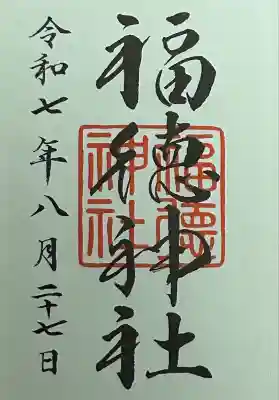 福徳神社
福徳
神社
令和七年八月二十七日